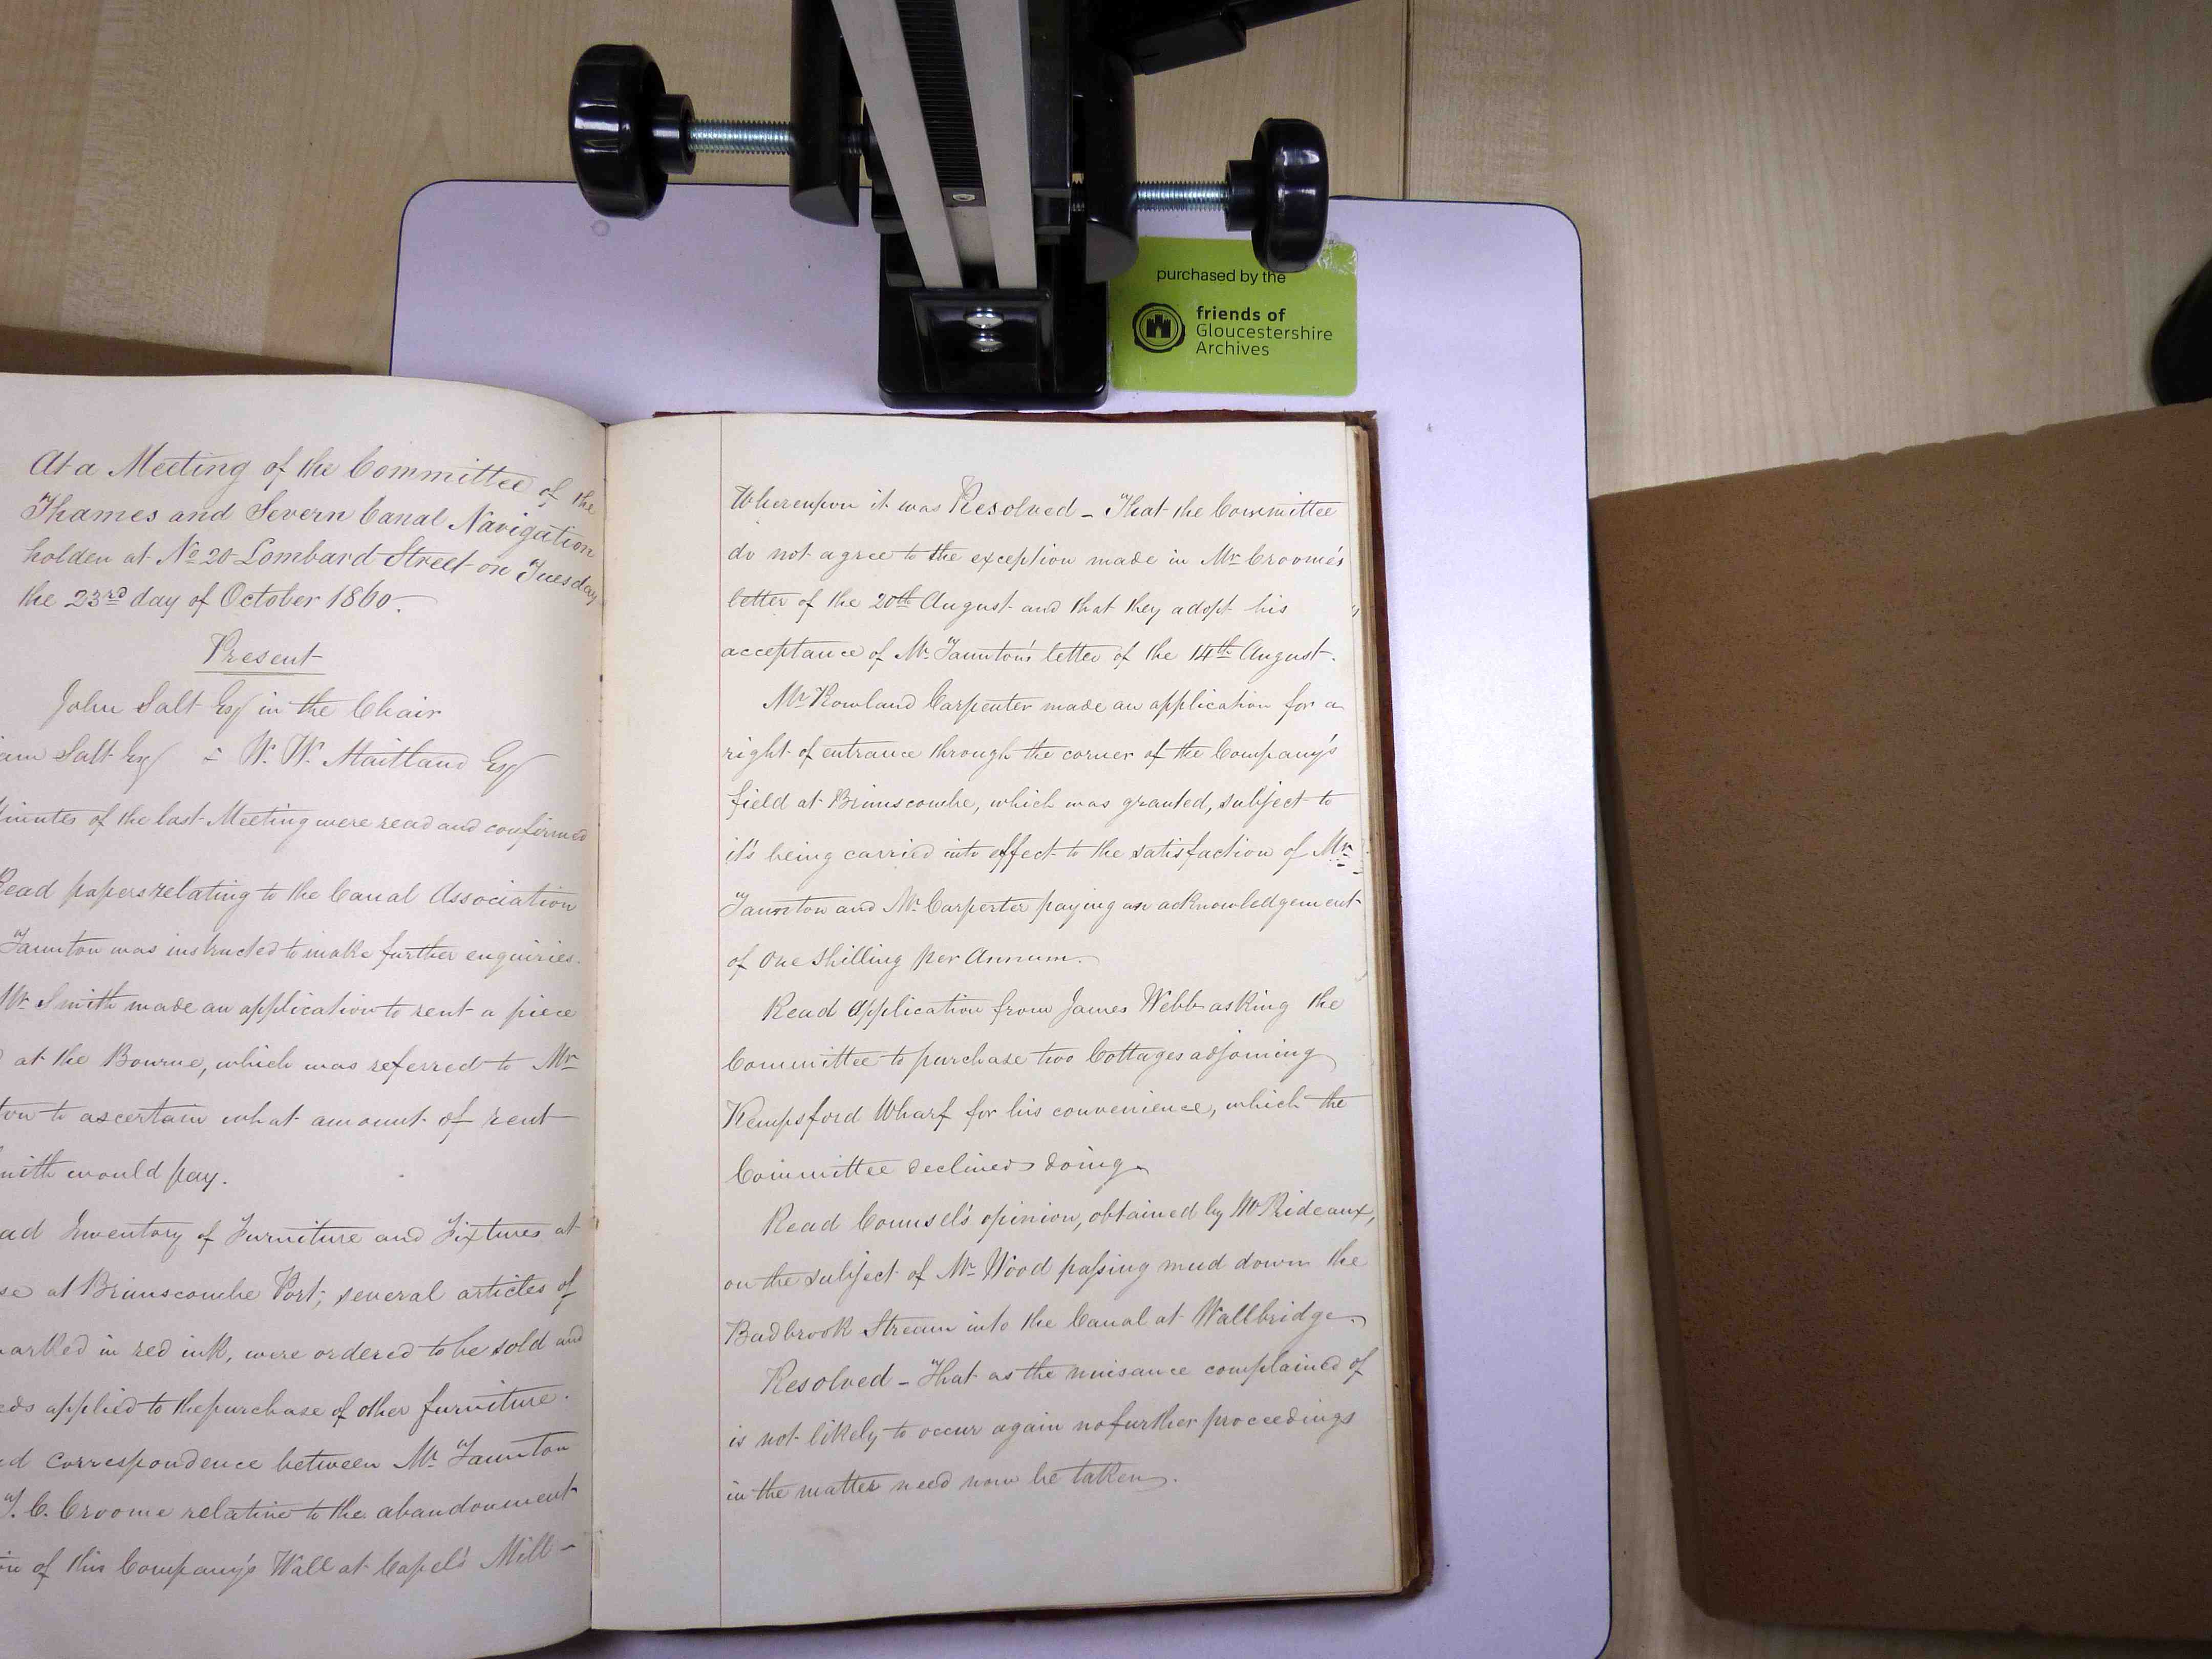 purchased by the
friends of
Gloucestershire
Archives
At a Meeting of the Committee of the
Thames and Severn Canal Navigation
holden at No 20 Lombard Street on Tuesday
the 23rd day of October 1860.
Present
John Salt Esq in the Chair
Salt Esq = W. W. Maitland Esq
Minutes of the last Meeting were read and confirmed
Read papers relating to the Canal Association
Taunton was instructed to make further enquiries.
Mr Smith made an application to rent a piece
at the Bourne, which was referred to Mr
to ascertain what amount of rent
would pay.
Inventory of Furniture and Fixtures at
at Brimscombe Port; several articles of
marked in red ink, were ordered to be sold and
applied to the purchase of other furniture.
correspondence between Mr Taunton
T. C. Croome relative to the abandonment
of this Company's Wall at Capel's Mill -
Whereupon it was Resolved - That the Committee
do not agree to the exception made in Mr Croome's
letter of the 20th August and that they adopt his "
acceptance of Mr Taunton's letter of the 14th August.
Mr Rowland Carpenter made an application for a
right of entrance through the corner of the Company's
field at Brimscombe, which was granted, subject to
it's being carried into effect to the satisfaction of Mr
Taunton and Mr Carpenter paying an acknowledgement
of One Shilling per Annum.
Read Application from James Webb asking the
Committee to purchase two Cottages adjoining
Kempsford Wharf for his convenience, which the
Committee declined doing.
Read Counsel's opinion, obtained by Mr Prideaux,
on the subject of Mr Wood passing mud down the
Badbrook Stream into the Canal at Wallbridge.
Resolved - That as the nuisance complained of
is not likely to occur again no further proceedings
in the matter need now be taken.